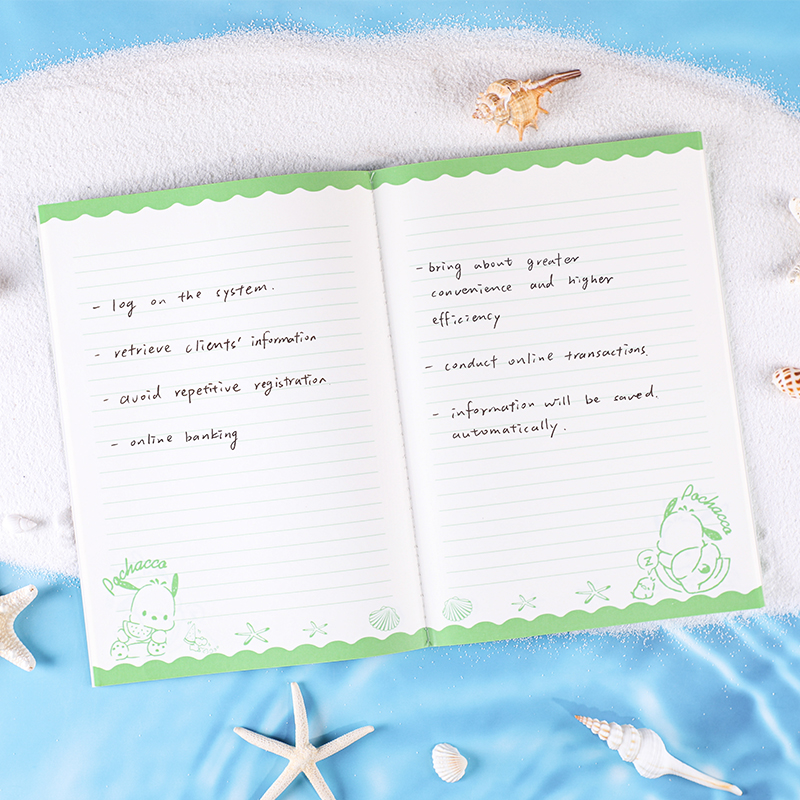 - log on the system.
- retrieve clients' information
- avoid repetitive registration
- online banking
Pochacco
- bring about greater
convenience and higher
efficiency
- conduct online transactions.
- information will be saved.
automatically.
Pochacco
Z